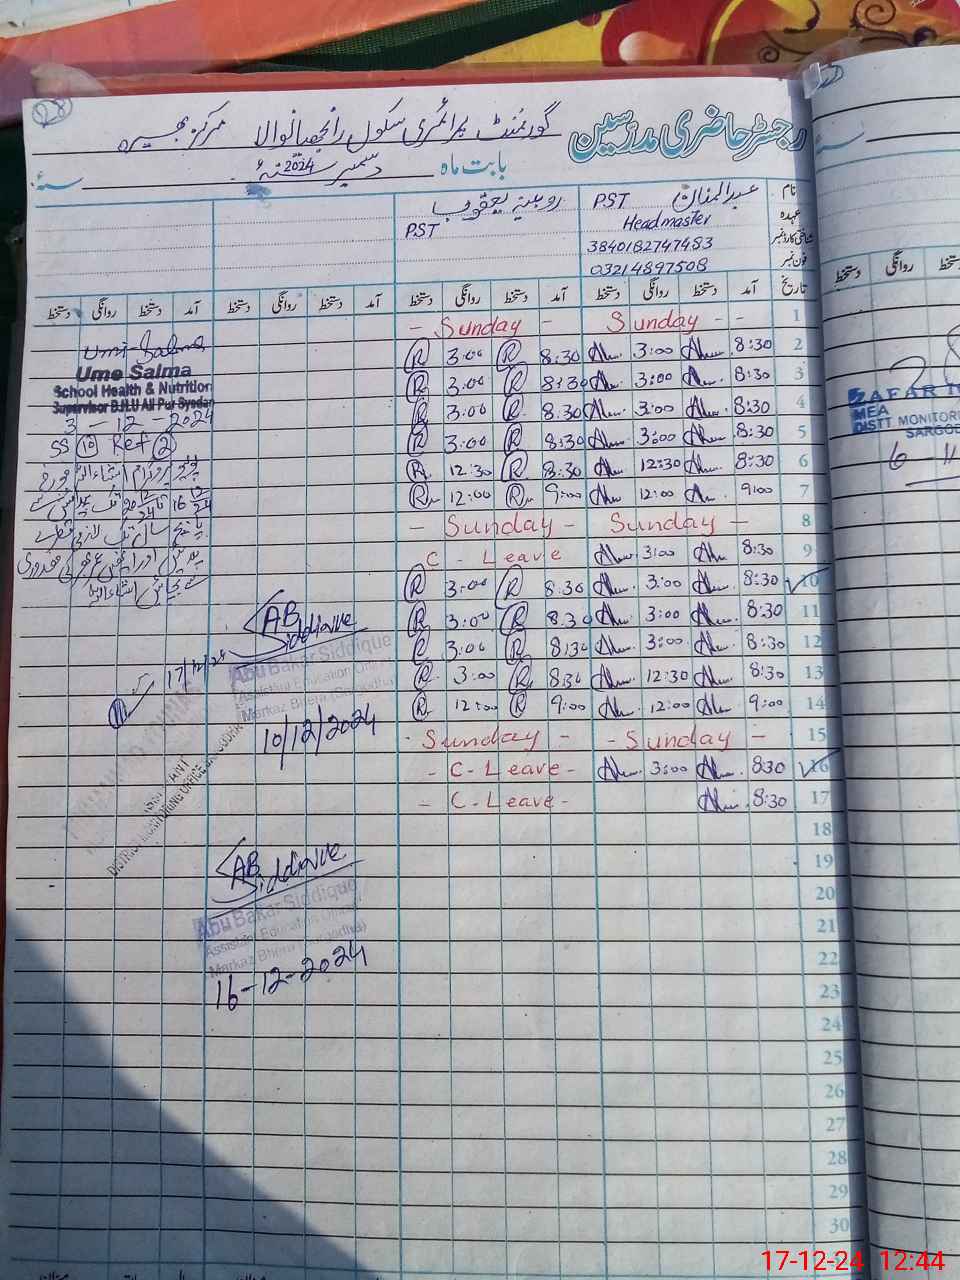 28
رجسٹر حاضری مدرسین گورنمنٹ پرائمری سکول رانجھیانوالا مرکز بھیرہ
بابت ماہ دسمبر 2024 سنہء
نام عبدالمنان PST روبینہ یعقوب
عہدہ Headmaster PST
شناختی کارڈ نمبر 3840182747483
فون نمبر 03214897508
تاریخ آمد دستخط روانگی دستخط آمد دستخط روانگی دستخط آمد دستخط روانگی دستخط آمد دستخط روانگی دستخط
1 - Sunday - - Sunday - -
2 8:30 3:00 8:30 R 3:00 R
3 8:30 3:00 8:30 R 3:00 R
4 8:30 3:00 8:30 R 3:00 R
5 8:30 3:00 8:30 R 3:00 R
6 8:30 12:30 8:30 R 12:30 R
7 9:00 12:00 9:00 R 12:00 R
8 - Sunday - Sunday -
9 8:30 3:00 C - Leave
10 8:30 3:00 8:30 R 3:00 R
11 8:30 3:00 8:30 R 3:00 R
12 8:30 3:00 8:30 R 3:00 R
13 8:30 12:30 8:30 R 3:00 R
14 9:00 12:00 9:00 R 12:00 R
15 - Sunday - - Sunday -
16 8:30 3:00 - C - Leave -
17 8:30 - C - Leave -
18
19
20
21
22
23
24
25
26
27
28
29
30
Umi-Salma
Ume Salma
School Health & Nutrition
Supervisor B.H.U Ali Pur Syedan
3 - 12 - 2024
SS 10 Ref 2
AB Siddique
Abu Bakar Siddique
Assistant Education Officer
Markaz Bhera (Sargodha)
10/12/2024
17/12/24
DISTRICT MONITORING OFFICE
AB Siddique
Abu Bakar Siddique
Assistant Education Officer
Markaz Bhera (Sargodha)
16-12-2024
روانگی
دستخط
ZAFAR
MEA
DISTT MONITORI
SARGOD
6 - 11
17-12-24 12:44